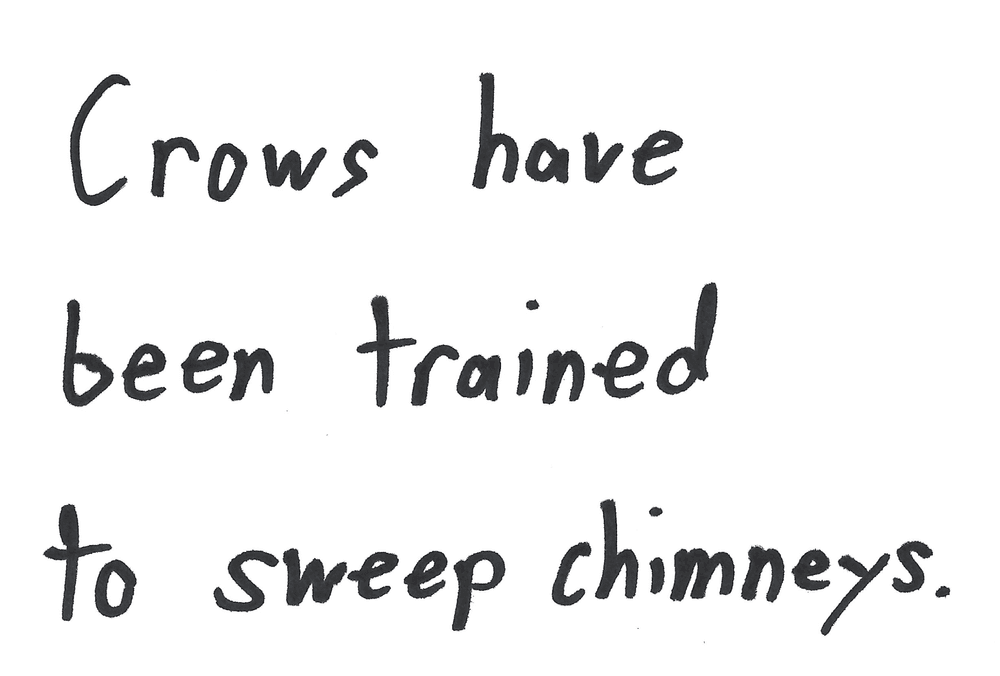 Crows have
been trained
to sweep chimneys.